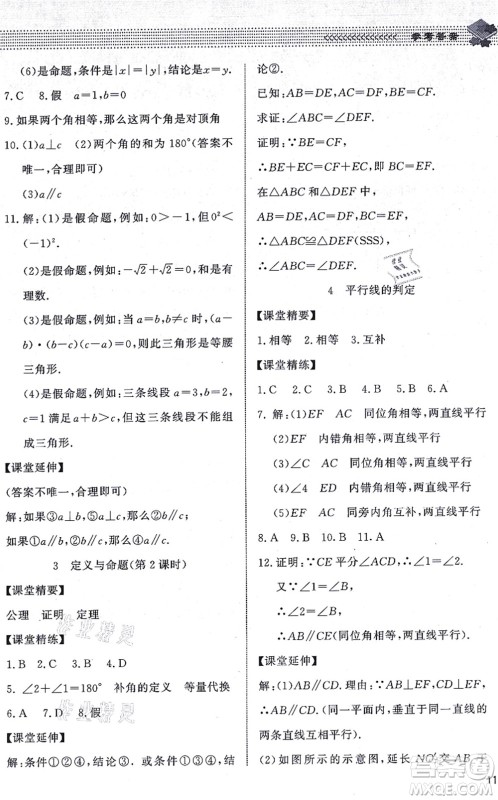 参考答案
(6)是命题,条件是|x|=|y|,结论是x=y
7. C　8. 假　a=1,b=0
9. 如果两个角相等,那么这两个角是对顶角
10. (1)a⊥c　(2)两个角的和为180°(答案不
唯一,合理即可)
(3)a∥c
11. 解:(1)是假命题,例如:0>-1,但0²<
(-1)².
(2)是假命题,例如:-√2+√2=0,0是有
理数.
(3)是假命题,例如:a=b,b≠c时,(a-
b)·(b-c)=0,所以此三角形是等腰
三角形.
(4)是假命题,例如:三条线段a,b,c满
足a+b>c,但a-b>c时,这三条线段不能组
成三角形.
【课堂延伸】
(答案不唯一,合理即可)
解:如果①a⊥b,②a∥c,那么④b⊥c;
如果①a⊥b,⑤a⊥c,那么②b∥c.
3　定义与命题(第2课时)
【课堂精要】
公理　证明　定理
【课堂精练】
1. B　2. B　3. A　4. D
5. ∠2+∠1=180°　补角的定义　等量代换
6. A　7. D　8. 假
【课堂延伸】
解:条件①③④,结论②. 或条件①②④,结
论②.
已知:AB=DE,AC=DF,BE=CF.
求证:∠ABC=∠DEF.
证明:∵BE=CF,
∴BE+EC=CF+EC. ∴BC=EF.
在△ABC和△DEF中,
AB=DE,AC=DF,BC=EF,
∴△ABC≌△DEF(SSS).
∴∠ABC=∠DEF.
4　平行线的判定
【课堂精要】
1. 相等　2. 相等　3. 互补
【课堂精练】
1. C　2. C　3. B　4. B　5. B　6. A
7. 解:(1)EF　AC　同位角相等,两直线平行
(2)EF　AC　内错角相等,两直线平行
(3)∠4　ED　内错角相等,两直线平行
(4)EF　AC　同旁内角互补,两直线平行
8. A　9. A　10. B　11. A
12. 证明:∵CE平分∠ACD,∴∠1=∠2.
又∵∠1=∠B,∴∠2=∠B,
∴AB∥CE(同位角相等,两直线平行).
【课堂延伸】
解:(1)AB∥CD. 理由:∵AB⊥EF,CD⊥EF,
∴AB∥CD(两条直线都与第三条直线平行,
这两条直线互相平行).
(2)如图所示的示意图,延长NO′交AB于
11
作业精灵